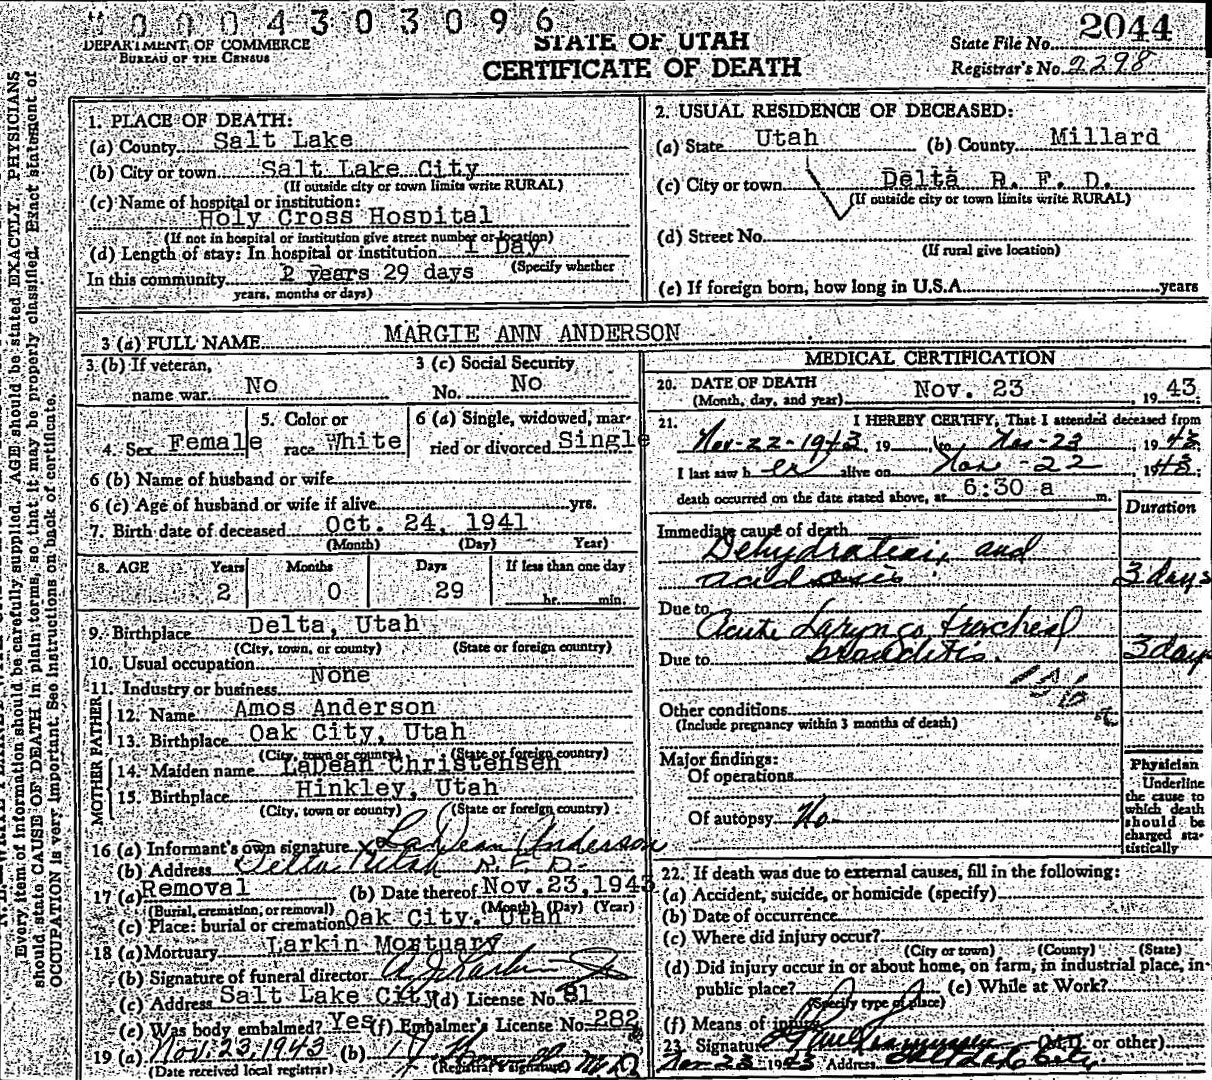 0004303096
DEPARTMENT OF COMMERCE
BUREAU OF THE CENSUS
STATE OF UTAH
CERTIFICATE OF DEATH
State File No. 2044
Registrar's No. 2298
Every item of information should be carefully supplied. AGE should be stated EXACTLY. PHYSICIANS
should state CAUSE OF DEATH in plain terms, so that it may be properly classified. Exact statement of
OCCUPATION is very important. See instructions on back of certificate.
1. PLACE OF DEATH:
(a) County Salt Lake
(b) City or town Salt Lake City
(If outside city or town limits write RURAL)
(c) Name of hospital or institution:
Holy Cross Hospital
(If not in hospital or institution give street number or location)
(d) Length of stay: In hospital or institution 1 Day
(Specify whether
In this community 2 years 29 days
years, months or days)
2. USUAL RESIDENCE OF DECEASED:
(a) State Utah (b) County Millard
(c) City or town Delta R. F. D.
(If outside city or town limits write RURAL)
(d) Street No.
(If rural give location)
(e) If foreign born, how long in U.S.A. years
3 (a) FULL NAME MARGIE ANN ANDERSON
3 (b) If veteran, name war No
3 (c) Social Security No. No
4. Sex Female
5. Color or race White
6 (a) Single, widowed, married or divorced Single
6 (b) Name of husband or wife
6 (c) Age of husband or wife if alive yrs.
7. Birth date of deceased Oct. 24, 1941
(Month) (Day) Year)
8. AGE Years Months Days If less than one day
2 0 29 hr. min.
9. Birthplace Delta, Utah
(City, town, or county) (State or foreign country)
10. Usual occupation
None
11. Industry or business
FATHER
12. Name Amos Anderson
13. Birthplace Oak City, Utah
(City, town or county) (State or foreign country)
MOTHER
14. Maiden name LaDean Christensen
15. Birthplace Hinkley, Utah
(City, town or county) (State or foreign country)
16 (a) Informant's own signature x LaDean Anderson
(b) Address Delta Utah R.F.D.
17 (a) Removal (b) Date thereof Nov.23,1943
(Burial, cremation, or removal) (Month) (Day) (Year)
(c) Place: burial or cremation Oak City. Utah
18 (a) Mortuary Larkin Mortuary
(b) Signature of funeral director
(c) Address Salt Lake City (d) License No. 81
(e) Was body embalmed? Yes (f) Embalmer's License No. 282
19 (a) Nov. 23, 1943 (b) M.D.
(Date received local registrar) (Registrar's signature)
MEDICAL CERTIFICATION
20. DATE OF DEATH Nov. 23 1943
(Month, day, and year)
21. I HEREBY CERTIFY, That I attended deceased from
Nov-22-1943, 19 to Nov-23 1943
I last saw her alive on Nov-22 1943
death occurred on the date stated above, at 6:30 a m.
Duration
Immediate cause of death
Dehydration and
acidosis 3 days
Due to Acute Laryngo tracheal
Due to bronchitis. 3 days
106
Other conditions
(Include pregnancy within 3 months of death)
Major findings:
Of operations
Of autopsy No
Physician
Underline
the cause to
which death
should be
charged sta-
tistically
22. If death was due to external causes, fill in the following:
(a) Accident, suicide, or homicide (specify)
(b) Date of occurrence
(c) Where did injury occur?
(City or town) (County) (State)
(d) Did injury occur in or about home, on farm, in industrial place, in
public place? (e) While at Work?
(Specify type of place)
(f) Means of injury
23. Signature (M.D. or other)
Nov 23 1943 Address Salt Lake City